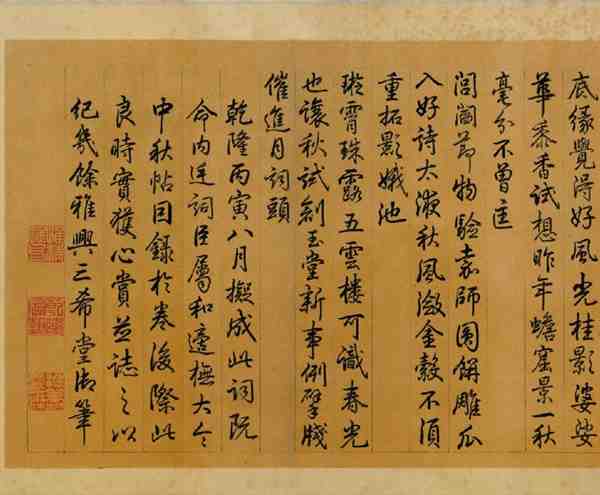 底緣覺得好風光桂影婆娑
華黍香試想昨年蟾窟景一秋
毫分不曾
閶闔節物驗嘉師圓餅雕瓜
入好詩太液秋風瀲金縠不須
重拓影娥池
璇霄珠露五雲樓可識春光
也讓秋試創玉堂新事例擘牋
催進月詞頭
乾隆丙寅八月擬成此詞既
命內廷詞臣屬和適撫大令
中秋帖因錄於卷後際此
良時實獲心賞並誌之以
紀幾餘雅興三希堂御筆